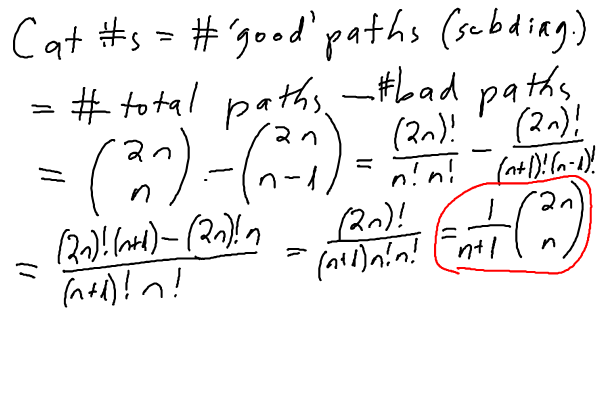 Cat #s = # 'good' paths (subdiag.)
= # total paths - #bad paths
= (2n n) - (2n n-1) = (2n)!/n! n! - (2n)!/(n+1)!(n-1)!
= (2n)!(n+1)-(2n)!n/(n+1)! n! = (2n)!/(n+1)n!n! = 1/n+1 (2n n)